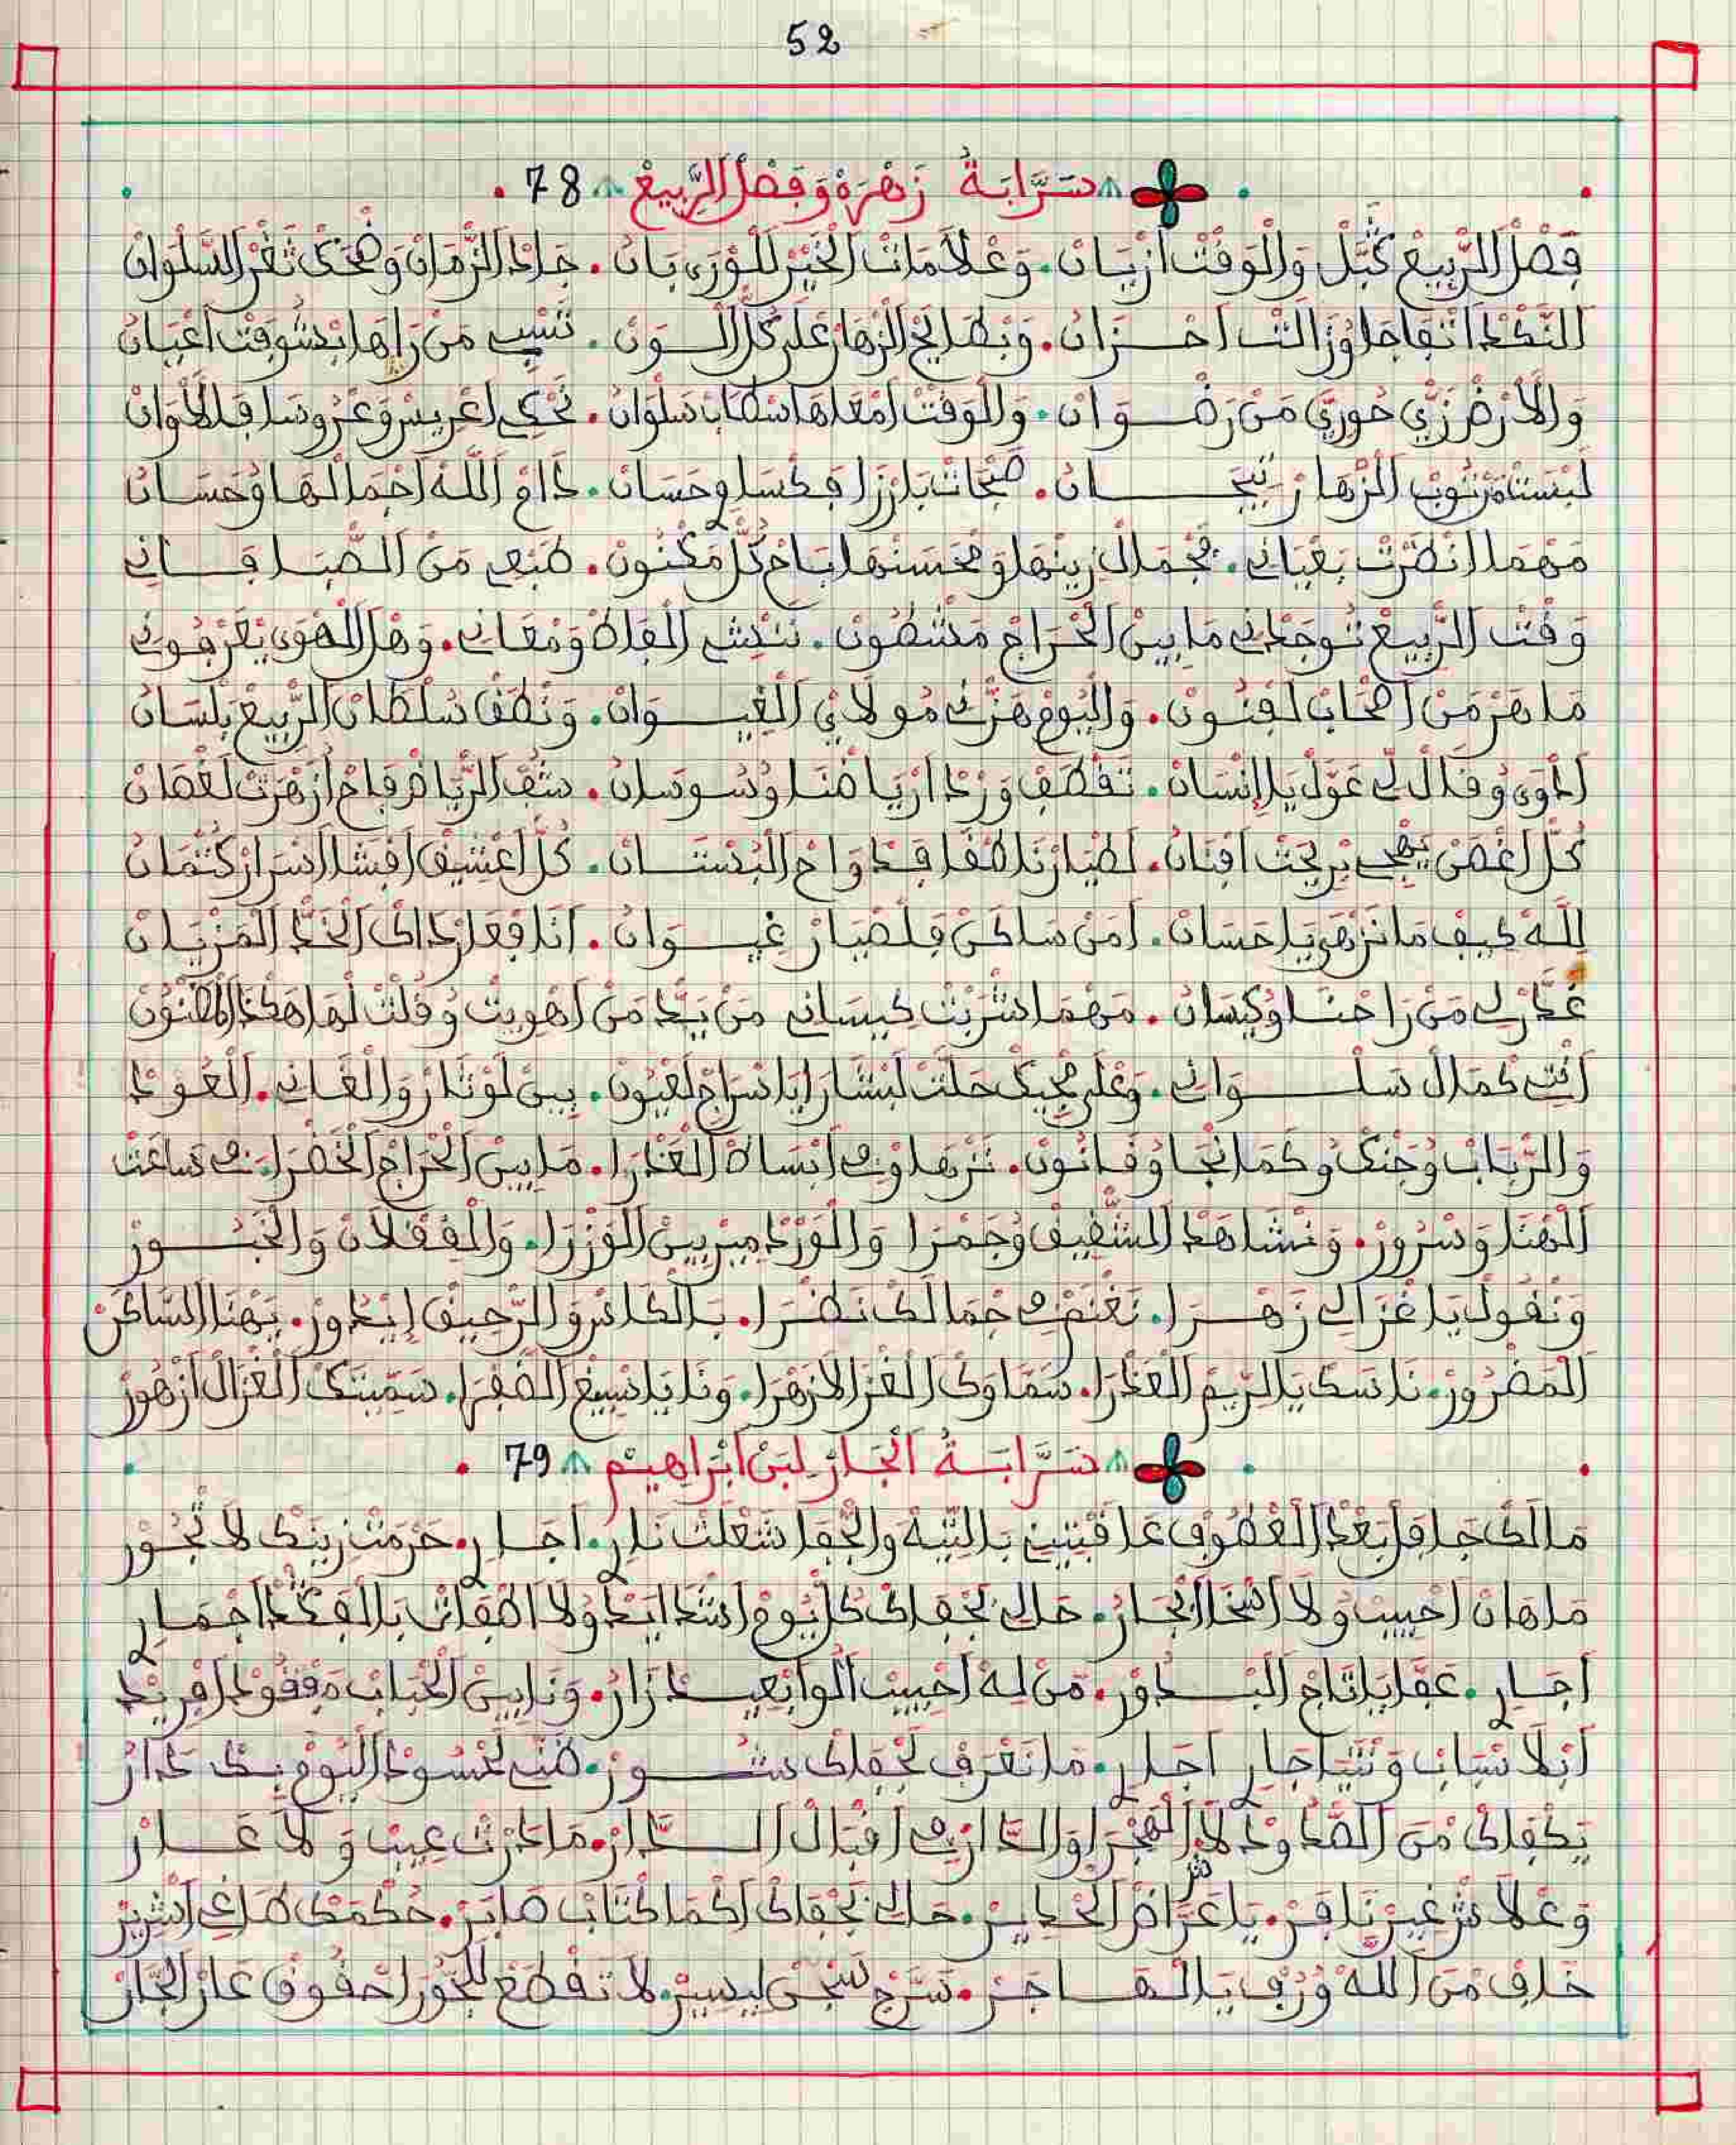 52
سَرَّابَةُ زَهْرَة وَفَصْلْ الرّْبِيعْ 78
فصل الربيع كبل والوقت ازيان . وعلامات الخير للورى بان . جاد الزمان وضحك ثغر السلوان
النكد اتفاجا وزالت احزان . وبطايح الزهار على كل الوان . تسبي من راها بشوفت اعيان
والارض زي حوري من رضوان . والوقت امعاها اسطاب سلوان . تحكي اعريس وعروسا فلطوان
لبست من ثوب الزهار تيجان . صبحات بارزا فكسا وحسان . دام الله اجمالها وحسان
مهما انظرت بعياني . فجمال زينها ومحسنها باح كل مكنون . طبعي من الصبا فاني
وقت الربيع توجدني ما بين الحراج مشطون . ننشي الفاظ ومعاني . وهل الهوى يعرفوني
ماهر من اصحاب لفنون . واليوم هزني مولاي الغيوان . ونطق سلطان الربيع بلسان
ادوى وقال لي عول يا الانسان . تقطف ورد ارياضنا وسوسان . شف الرياض فاح ازهرت لغصان
كل اغصن يبهج بريحت افنان . لطيار ناطقا فدواح البستان . كل اعشيق افشا اسرار كتمان
لله كيف ما نزهى يا حسان . امن ساكن فلصيار غيوان . انا فعار داك الخد المزيان
غدرلي من راحنا وكيسان . مهما شربت كيساني من يد من اهويت وقلت لها هكذا المضنون
انت كمال سلواني . وعلى مجيك حلت لبشارا يا سراج لعيون . بين لوتار والغاني . العود
والرباب وجنك وكمانجا وقانون . نزها وفي ابساط الغدرا . ما بين الحراج الخضرا في ساعت
الهنا وسرور . ونشاهد الشقيف وجمرا والورد مير بين الوزرا . والفقلان والخبور
ونقول يا غزالي زهرا . نغنم في جمالك نظرا . بالكاس والرحيق ايدور . يهنا الساكن
المضرور . ناسك يا الريم العذرا . سماوك الغزالا زهرا . ونا يا نسيغ الضفرا . سميتك الغزال ازهور
سَرَّابَةُ الْجَارْ لبَنْ ابْرَاهِيمْ 79
مالك جافل بعد العطوف عافيتيني بالتيه والجفا شعلت نار . اجار . حرمت زينك لا تجور
ماهان احبيب ولا اسخا الجار . حالي بجفاك كل يوم اشد ايد ولا اطقات بالفكد اجمار
اجار . عفا يا تاج البدور . من له احبيب الو ابعيد زار . ونا بين الحباب مفقود افريد
ابلا سباب ونتيا جار اجار . ما نعرف لجفاك شور . ظني لحسود اليوم بك دار
يكفاك من الصدود لا الهجرا والدار في اقبال الدار . ما درت عيب ولا عار
وعلاش غير نافر . يا عراض الخداير . حالي بجفاك اكما كتاب صابر . حكمك طاغي اشرير
خاف من الله ورف يا الهاجر . سرج سجن ليسير . لا تقطع للجور احقوق عار الجار